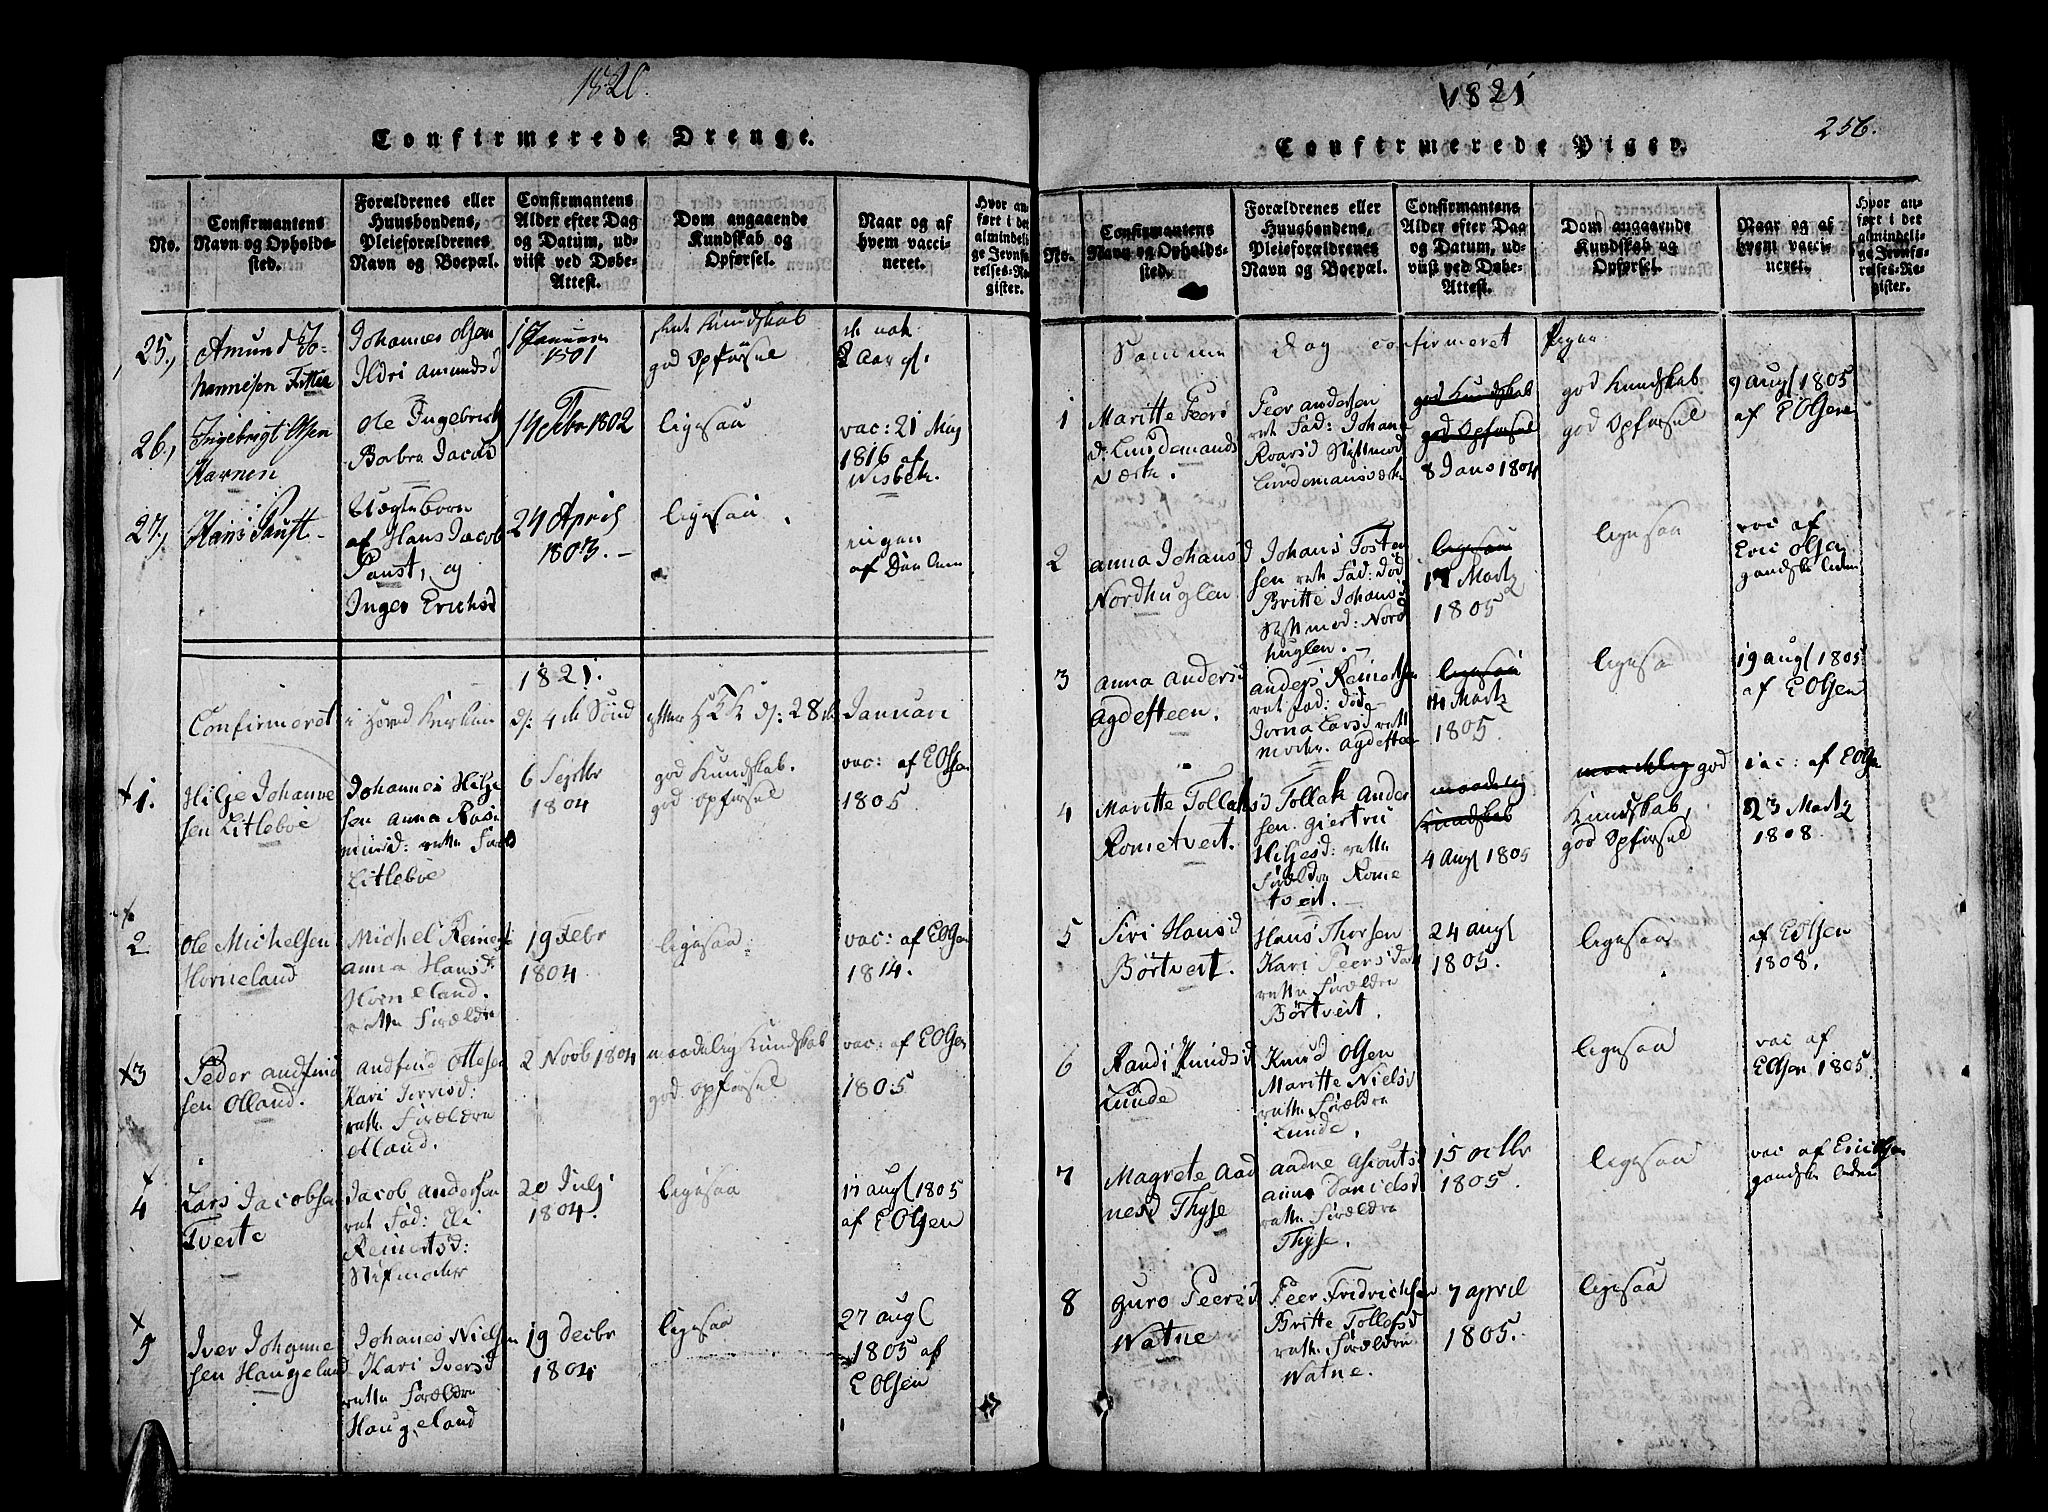 1820.
Confirmerede Drenge.
No.
Confirmantens
Navn og Opholds-
sted.
Forældrenes eller
Huusbondens,
Pleieforældrenes
Navn og Boepæl.
Confirmantens
Alder efter Dag
og Datum, ud-
viist ved Døbe-
Attest.
Dom angaaende
Kundskab og
Opførsel.
Naar og af
hvem vacci-
neret.
Hvor an-
ført i det
almindeli-
ge Jevnfø-
relses-Re-
gister.
25.,
Amund Jo-
hannesen
Johannes Olsen
Ildri Amundsd
1 Januar
1801
Kundskab
god Opførsel
2 Aar gl.
26.,
Ingebrigt Olsen
Ole Ingebrich
Barbra Jacobs
14 Febr 1802
ligesaa
vac: 21 Maj
1816 af
Nisbeth.
27.,
Hans Paust.-
Uægteborn
af Hans Jacob
Paust, og
Inger Erichsd
24 April
1803.-
ligesaa
ingen
af
1821.
Confirmeret i Hoved Kirken d: 4de Sønd efter H3K d: 28de Januari
+1.
Hilje Johanne
sen Litleboe
Johannes Hilje
sen Anna Ras
musd: rette
Litleboe
6 Septbr
1804
god Kundskab.
god Opførsel
vac: af EOlsen
1805.
+
2
Ole Michelsen
Horneland
Michel Reinert
Anna Hansd:
Horneland.
rette Forældre
19 Febr
1804.
ligesaa:
vac: af EOlsen
1814.
+3
Peder Andfind
sen Olland.
Andfind Ottesen
Kari
rette Forældre
Olland.
2 Novb 1804
maadelig Kundskab
god Opførsel
vac: af EOlsen
1805
+
4
Lars Jacobsen
Tveite
Jacob Andersen
ret Fad: Eli
Reinertsd:
Stifmoder
20 Julj
1804.
ligesaa
17 Augl 1805
af EOlsen
+
5
Iver Johanne
sen Haugeland
Johanes Nielsen
Kari Iversd
rette Forældre
Haugeland
19 Decbr
1804
ligesaa
27 Augl
1805 af
EOlsen
1821
256.
Confirmerede Piger.
No.
Confirmantens
Navn og Opholds-
sted.
Forældrenes eller
Huusbondens,
Pleieforældrenes
Navn og Boepæl.
Confirmantens
Alder efter Dag
og Datum, ud-
viist ved Døbe-
Attest.
Dom angaaende
Kundskab og
Opførsel.
Naar og af
hvem vacci-
neret.
Hvor an-
ført i det
almindeli-
ge Jevnfø-
relses-Re-
gister.
Samme Dag confirmeret Piger
1
Maritte Peers
d: Lindemands
Værk.
Peer Andersen
ret Fad: Johana
Roarsd Stifmod
Lindemansværk
god Kundskab
god Opførsel
8 Janv 1804
god Kundskab
god Opførsel
9 Augl 1805
af EOlsen
2
Anna Johansd
Nordhuglen
Johans Tosten
sen ret Fad: død
Britte Johansd
Stifmod: Nord
huglen.-
ligesaa
17 Martz
1805
ligesaa
vac af
Eric Olsen
ganske liden
3
Anna Andersd
Agdesteen.
Anders Reinertsen
ret Fad: død-
Jorna Larsd rett
moder. Agdesteen
ligesaa
Martz
1805.
ligesaa
19 Augl 1805
af EOlsen
4
Maritte Tollaksd
Rometveit.
Tollak Ander
sen. Giertru
Hiljesd: rette
Forældre Rome
tveit.-
maadelig
Kundskab
4 Augl 1805
maadelig god
Kundskab,
god Opførsel
vac: af EOlsen
23 Martz
1808.
5
Siri Hansd
Børtveit.
Hans Thorsen
Kari Peersdatt
rette Forældre
Børtveit.
24 Augl
1805.
ligesaa
af EOlsen
1808.
6
Randi Knudsd
Lunde
Knud Olsen
Maritte Nielsd
rette Forældre
Lunde.
ligesaa
vac af
EOlsen 1805
7
Magrete Aad
nesd Thyse
Aadne
Anna Danielsd
rette Forældre
Thyse.
15 Octbr
1805.
ligesaa
vac af Eric Olsen
ganske liden
8
Guro Peersd
Watne
Peer Fridrichsen
Britte Tollefsd
rette Forældre
Watne.
7 April
1805.
ligesaa